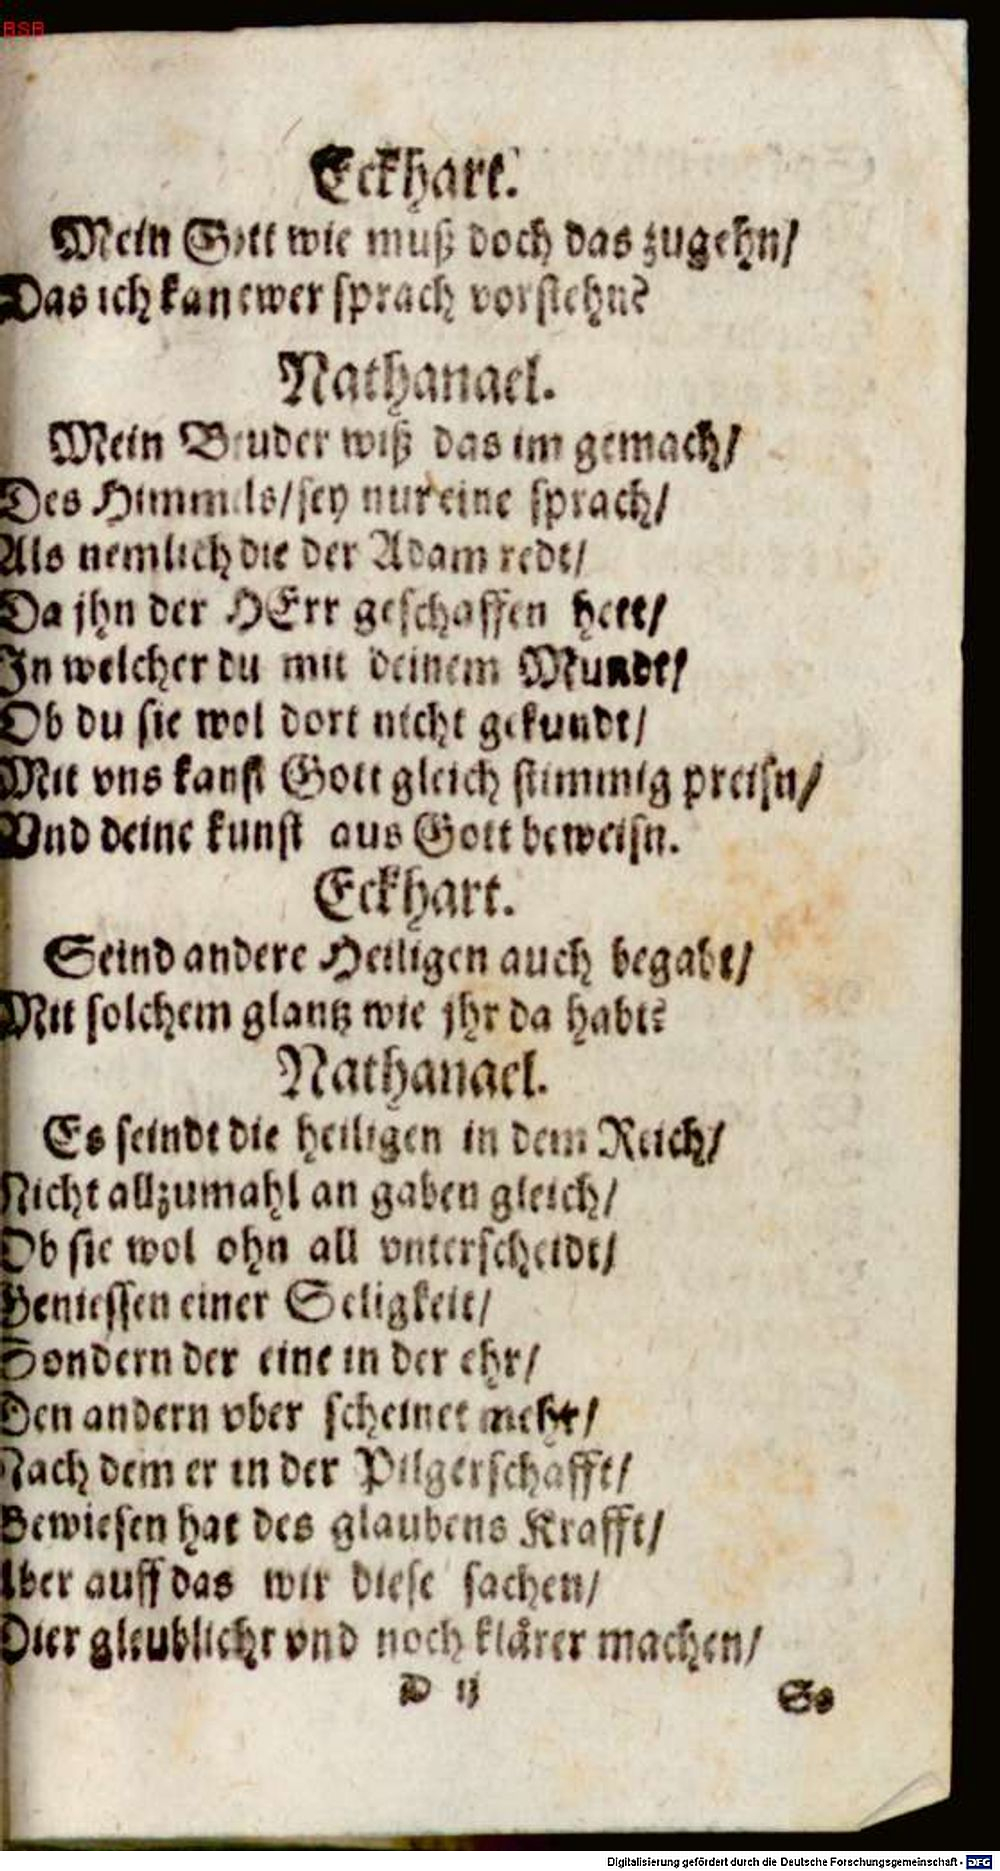 BSB
Eckhart.
Mein Gott wie muß doch das zugehn/
Das ich kan ewer sprach vorstehn?
Nathanael.
Mein Bruder wiß das im gemach/
Des Himmels/sey nur eine sprach/
Als nemlich die der Adam redt/
Da jhn der HErr geschaffen hett/
In welcher du mit deinem Mundt/
Ob du sie wol dort nicht gekundt/
Mit vns kanst Gott gleich stimmig preisn/
Vnd deine kunst aus Gott beweisn.
Eckhart.
Seind andere Heiligen auch begabt/
Mit solchem glantz wie jhr da habt?
Nathanael.
Es seindt die heiligen in dem Reich/
Nicht allzumahl an gaben gleich/
Ob sie wol ohn all vnterscheidt/
Geniessen einer Seligkeit/
Sondern der eine in der ehr/
Den andern vber scheinet mehr/
Nach dem er in der Pilgerschafft/
Bewiesen hat des glaubens Krafft/
Aber auff das wir diese sachen/
Dier gleublichr vnd noch klårer machen/
D ij So
Digitalisierung gefördert durch die Deutsche Forschungsgemeinschaft - DFG